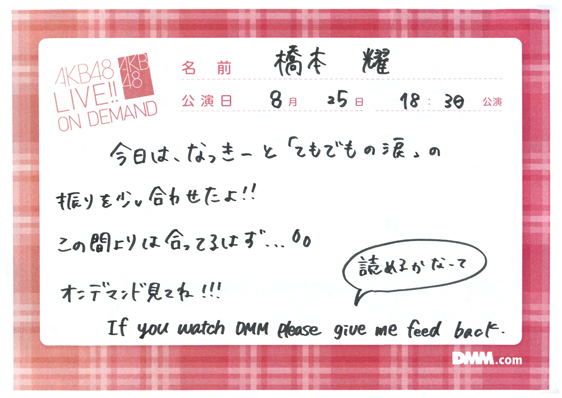 AKB48
LIVE!!
ON DEMAND
AKB
48
名前 橋本 耀
公演日 8月 25日 18:30 公演
今日は、なっきーと「てもでもの涙」の
振りを少し合わせたよ!!
この間よりは合ってるはず...
読めるかなって
オンデマンド見てね!!!
If you watch DMM please give me feed back.
DMM.com